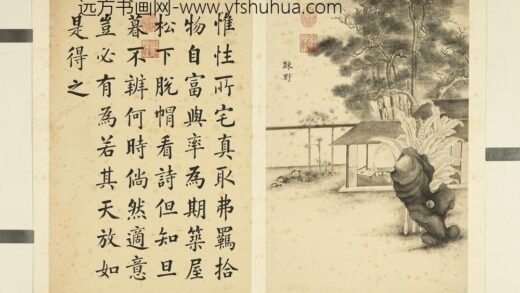 远方书画网-www.yfshuhua.com
惟性所宅真取弗羈拾
物自富與率為期築屋
松下脫帽看詩但知旦
暮不辨何時倘然適意
豈必有為若其天放如
是得之
疎野